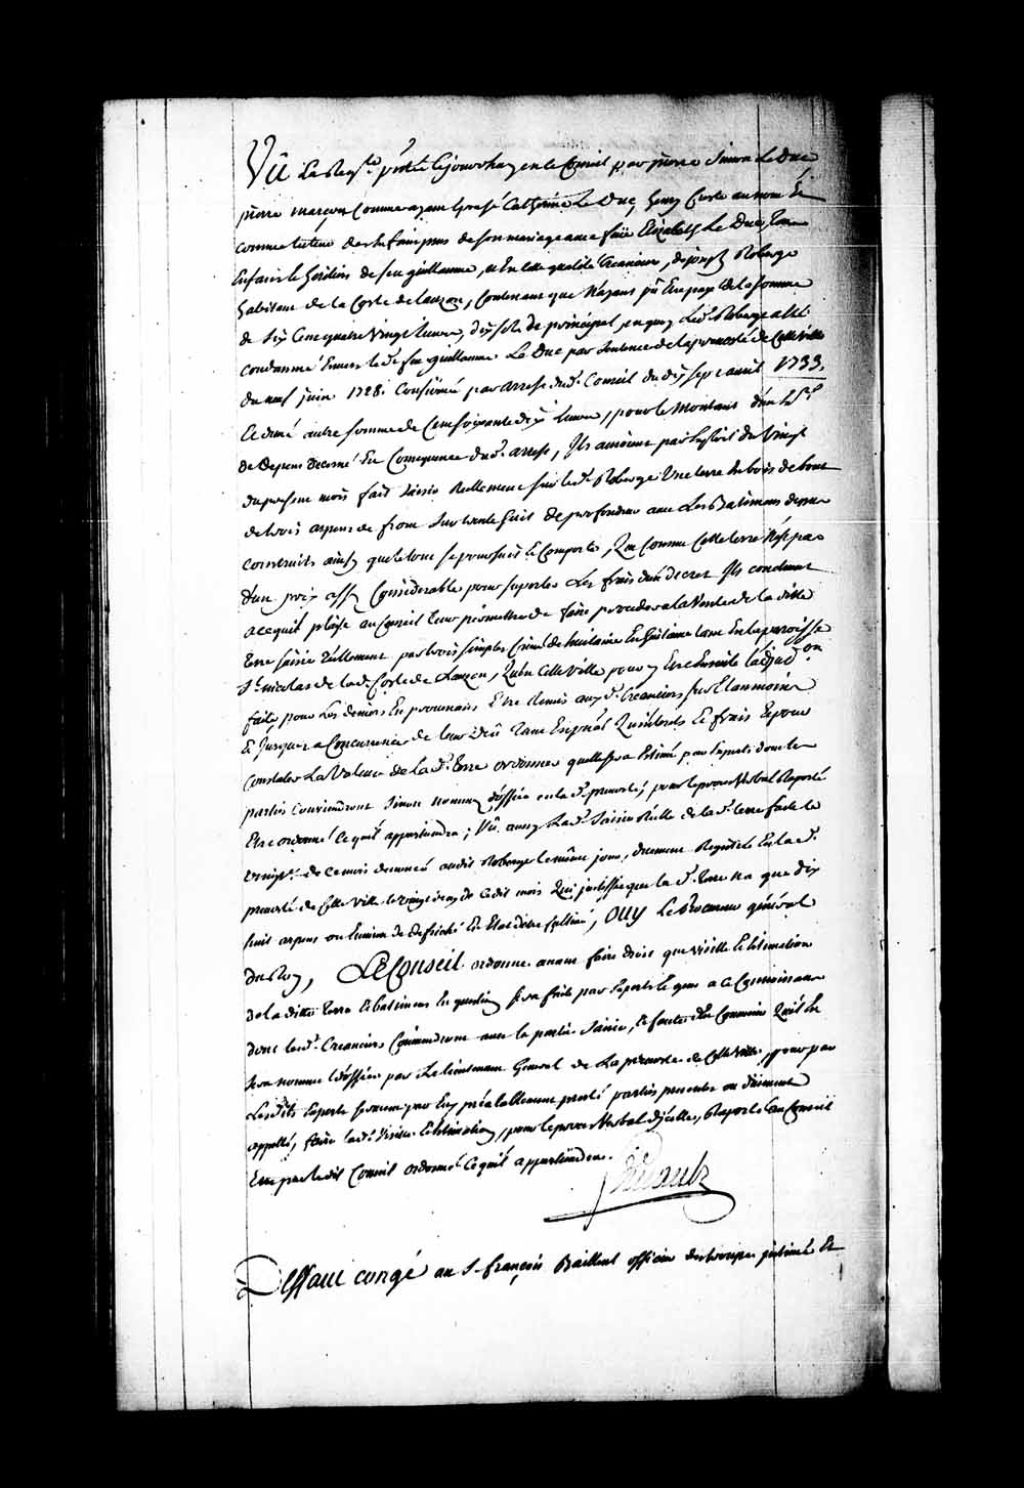 Vû La Reqte pntée cejourdhuy en le Conseil par pierre Simon Le Duc
pierre marcoux comme ayant Epousé Catherine Le Duc, henry Curte au nom Et
comme tuteur des Enfans jssus de son mariage avec feüe Elizabeth Le Duc, Tous
Enfans Et heritiers de feu guillaume, et En cette qualité Creanciers, de joseph Roberge
habitant de la Coste de Lauzon, Contenant que N'ayant pû Etre payé de la somme
de Six Cent quatre Vingt Livres, dix sols de principal, en quoy led. Roberge a Eté
condamné Envers led. feu guillaume Le Duc par Sentence de la prevosté de Cette Ville
du neuf juin 1728. Confirmé par arrest dud. Conseil du dix sept avril 1733.
Et dune autre somme de Cent soixante dix Livres, pour le Montant d'un
de Depens decerné En Consequence dud. arrest, Ils auroient par Exploit du Vingt
du present mois fait saisir Reellement sur led. Roberge Une terre En bois de bout
de trois arpens de front sur trente huit de profondeur avec Les Batimens dessus
construits ainsy que le tout se poursuit Et Comporte, Que Comme Cette terre N'est pas
d'un prix assez Considerable pour suporter Les frais d'un decret Ils concluent
a ce quil plaise au Conseil Leur permettre de faire proceder a la Vente de la ditte
terre saisie Réellement par trois simples Criées de huitaine En huitaine tant En la paroisse
St. nicolas de lad. Coste de Lauzon, Qu'en Cette Ville pour y Etre Ensuite l'adjudon
faite, pour Les deniers En provenans Etre remis auxd. Creanciers sur Etanmoins
Et jusques a Concurrence de leur deû Tant En principal Qu'interets Et frais Et pour
Constater La Valeur de la d. Terre ordonner quelle sera Estimé par Experts dont les
parties conviendront Sinon nommez d'office en la d. prevosté, pour le procez Verbal Raporté
Etre ordonné Ce quil appartiendra; Vû aussy La d. Saisie Réelle de la d. terre faite le
vingt de ce mois denoncé audit Roberge le même jour, duement Registrée En la d.
prevosté de Cette Ville le vingt deux de cedit mois Qui justiffie que la d. Terre n'a que dix
huit arpens ou Environ de defriché En Etat d'être Cultivé, OUY Le Procureur général
du Roy, LE CONSEIL ordonne avant faire droit que visitte Et Estimation
de la ditte Terre Et batimens En question sera faite par Experts Et gens a ce Connoissans
dont lesd. Creanciers Conviendront avec la partie Saisie, Et faute d'en Convenir Quil En
sera nommé d'office par Le Lieutenant General de La prevosté de Cette Ville, pour par
Lesdits Experts serment par Eux préalablement presté parties presentes ou duement
appellés, faire lad. Visitte Et Estimation, pour le procez Verbal d'icelle, Raporté au Conseil
Etre par ledit Conseil ordonné Ce quil appartiendra.
Deffaut congé au S. françois Bailleul officier des troupes jntimé Et